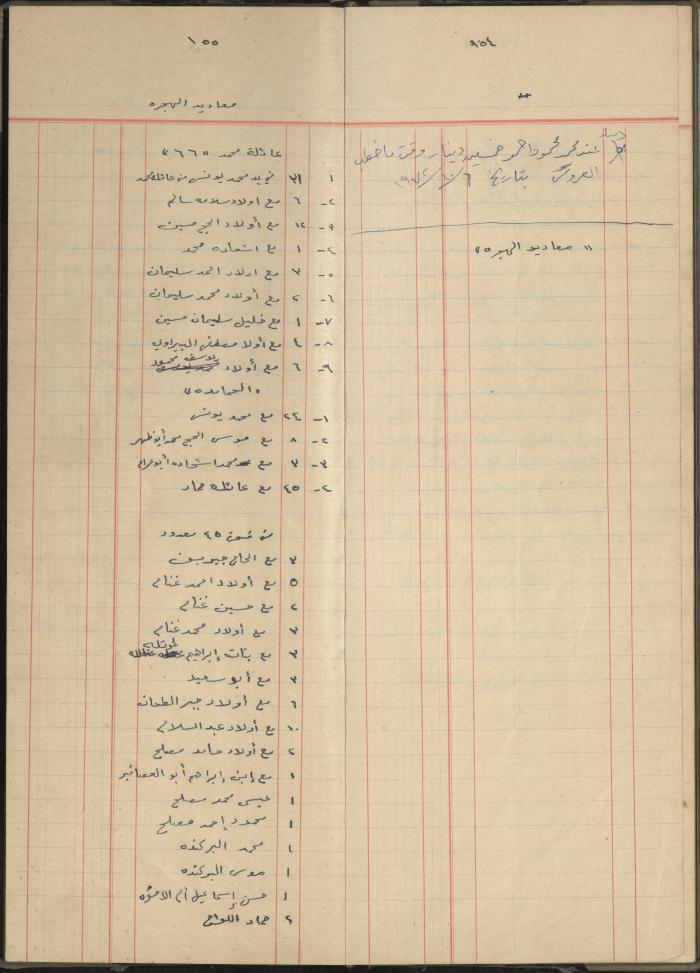 ١٥٤
دينار
عند محمد محمود احمد خمسين دينار وقت ما خطب
العروس بتاريخ ٦/ /١٩٥٢
" معاديد الهجره "
١٥٥
معاديد الهجره
عائلة محمد "٦٦"
١ ٣١ في يد محمد يونس من عائلة محمد
٢- ٦ مع اولاد سلامه سالم
٣- ١٢ مع أولاد الحج حسين
٤- ١ مع اشحاده محمد
٥- ٣ مع اولاد احمد سليمان
٦- ٢ مع أولاد محمد سليمان
٧- ١ مع خليل سليمان حسين
٨- ٤ مع أولاد مصطفى البيراوي
٩- ٦ مع أولاد يوسف محمود
"الحمامده"
١- ٢٤ مع محمد يونس
٢- ٨ مع موسى الحج محمد أبو ظهر
٣- ٣ مع محمد اشحاده أبو عرام
٢- ٤٥ مع عائلة حماد
٤٥ معدود
٣ مع الحاج جبر
٥ مع أولاد احمد غنام
٢ مع حسين غنام
٣ مع أولاد محمد غنام
٣ مع بنات إبراهيم
٣ مع أبو سعيد
٦ مع أولاد جبر الطحان
١٠ مع أولاد عبد السلام
٢ مع أولاد حامد مصلح
١ مع إبن إبراهيم أبو العصافير
١ عيسى محمد مصلح
١ محمود إحمد مصلح
١ محمد البركنده
١ موسى البركنده
١ حسن إسماعيل
٢ حماد